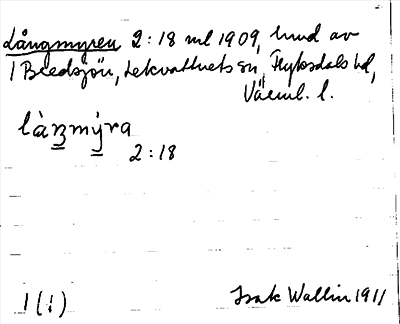 Långmyren 2:18 ml 1909, hmd av
1 Bredsjön, Lekvattnets sn, Fryksdals hd,
Värml. l.
làŋmýra
2:18
1(1)
Isak Wallin 1911